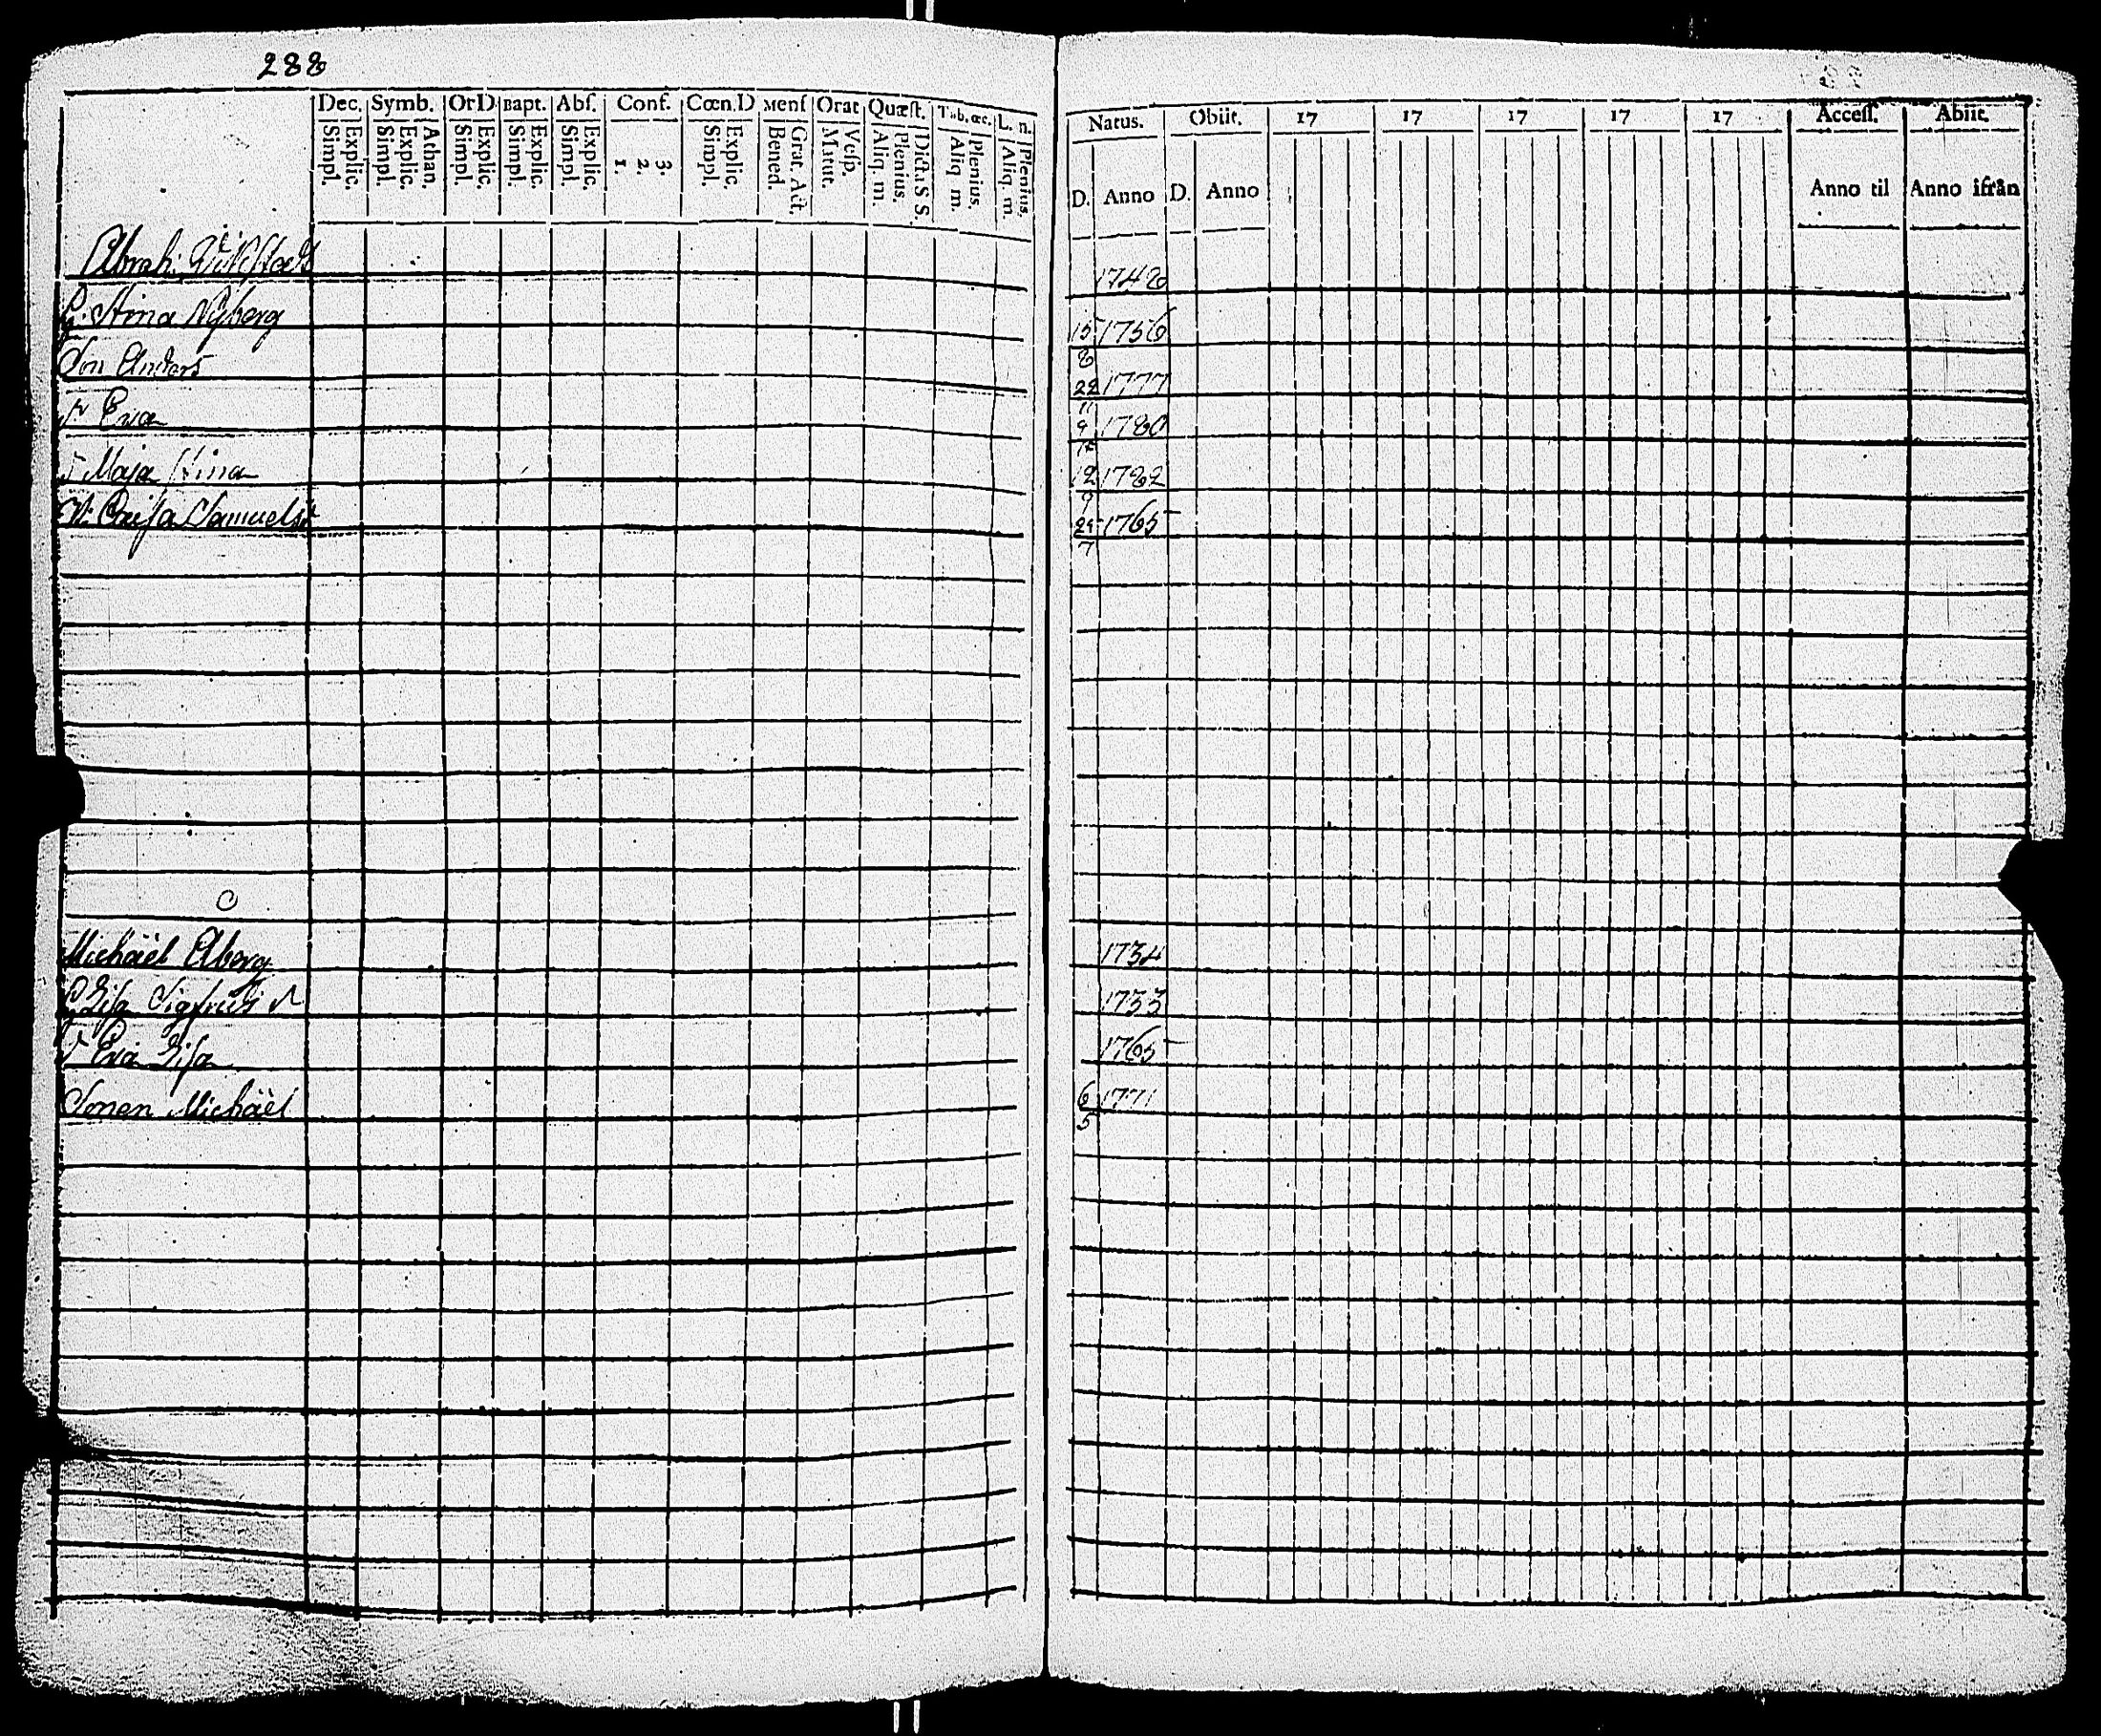 288
Dec. Symb. Or D Bapt. Abſ. Conf. Cœn. D Menſ Orat Quæſt. Tab. œc. L. n.
Simpl. Explic. Simpl. Explic. Athan. Simpl. Explic. Simpl. Explic. Simpl. Explic. 1. 2. 3. Simpl. Explic. Bened. Grat. Act. Matut. Veſp. Aliq. m. Plenius. Dicta S S. Aliq m. Plenius. Aliq. m. Plenius.
Natus. Obiit. 17 17 17 17 17 Acceſſ. Abiit.
D. Anno D. Anno Anno til Anno ifrån
Abrah: 1748
H: Stina Nyberg 15/8 1756
Son Anders 22/11 1777
Eva 1780
Maja Stina 12/9 1782
Caisa Samuels 1765
Michäel Åberg 1734
Lisa Sigfrids 1733
Eva Lisa 1765
Sonen Michäel 6/5 1771